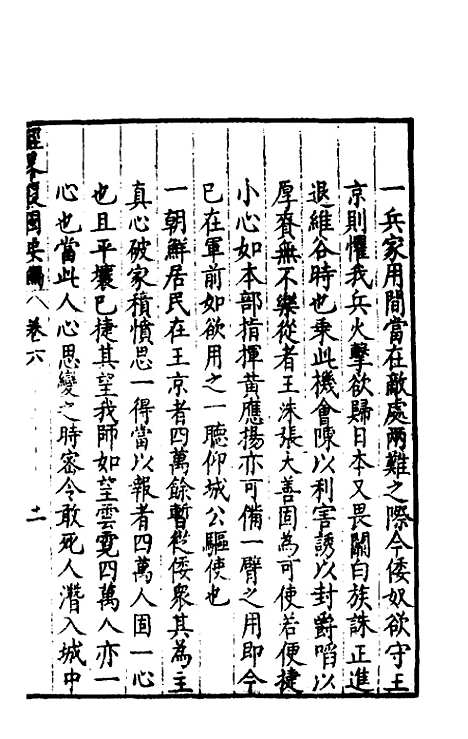 一兵家用間當在敵處兩難之際今倭奴欲守王
京則懼我兵火擊欲歸日本又畏關白族誅正進
退維谷時也乘此機會陳以利害誘以封爵啗以
厚賚無不樂從者王洙張大善固為可使若便捷
小心如本部指揮黃應揚亦可備一臂之用即今
已在軍前如欲用之一聽仰城公驅使也
一朝鮮居民在王京者四萬餘暫從倭衆其為主
真心破家積憤思一得當以報者四萬人固一心
也且平壤已捷其望我師如望雲霓四萬人亦一
心也當此人心思變之時審令敢死人潛入城中
經畧復國要編 卷六 二